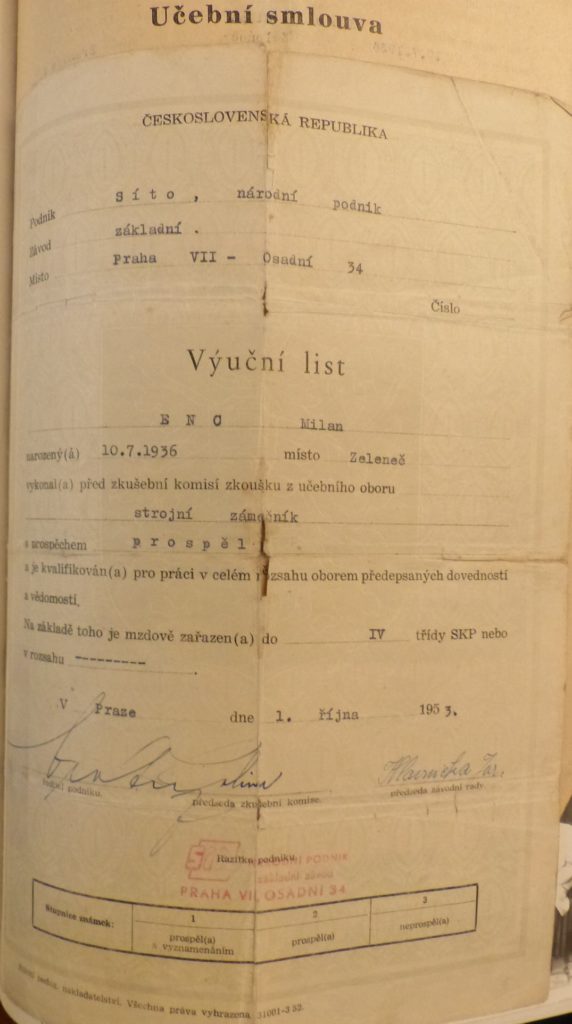 Učební smlouva
ČESKOSLOVENSKÁ REPUBLIKA
Podnik Síto, národní podnik
Závod základní.
Místo Praha VII - Osadní 34
Číslo
Výuční list
ENC Milan
narozený(á) 10.7.1936 místo Zeleneč
vykonal(a) před zkušební komisí zkoušku z učebního oboru
strojní zámečník
s prospěchem prospěl
a je kvalifikován(a) pro práci v celém rozsahu oborem předepsaných dovedností
a vědomostí.
Na základě toho je mzdově zařazen(a) do IV třídy SKP nebo
v rozsahu ---------.
V Praze dne 1. října 1953.
Hlavnička
ředitel podniku. předseda zkušební komise. předseda závodní rady.
Razítko podniku
NÁRODNÍ PODNIK
základní závod
PRAHA VII, OSADNÍ 34
Stupnice známek: 1 2 3
prospěl(a) s vyznamenáním prospěl(a) neprospěl(a)
nakladatelství. Všechna práva vyhrazena 31001-3 52.